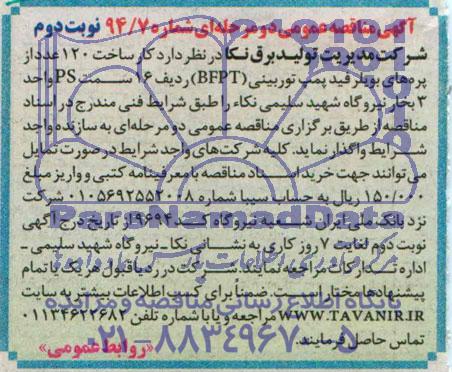 آگهی مناقصه عمومی دو مرحله‌ای شماره ۹۴/۷ نوبت دوم
شرکت مدیریت تولید برق نکا در نظر دارد کار ساخت ۱۲۰ عدد از
پره‌های بویلر فید پمپ توربینی (BFPT) ردیف ۱۶ سمت PS واحد
۳ بخار نیروگاه شهید سلیمی نکاء را طبق شرایط فنی مندرج در اسناد
مناقصه از طریق برگزاری مناقصه عمومی دو مرحله‌ای به سازنده واجد
شرایط واگذار نماید. کلیه شرکت‌های واجد شرایط در صورت تمایل
می‌توانند جهت خرید اسناد مناقصه با معرفینامه کتبی و واریز مبلغ
۱۵۰/۰۰۰ ریال به حساب سیبا شماره ۰۱۰۵۶۹۲۵۵۲۰۰۸ شرکت
نزد بانک ملی ایران شعبه نیروگاه کد ۹۶۹۴ از تاریخ درج آگهی
نوبت دوم لغایت ۷ روز کاری به نشانی نکا - نیروگاه شهید سلیمی -
اداره تدارکات مراجعه نمایند. شرکت در رد یا قبول هر یک یا تمام
پیشنهادها مختار است. ضمناً برای کسب اطلاعات بیشتر به سایت
WWW.TAVANIR.IR مراجعه و یا با شماره تلفن ۰۱۱۳۴۶۲۲۶۸۲
تماس حاصل فرمایند.
«روابط عمومی»
ParsNamadData
پایگاه اطلاع رسانی مناقصه و مزایده
۰۲۱-۸۸۳۴۹۶۷۰-۵